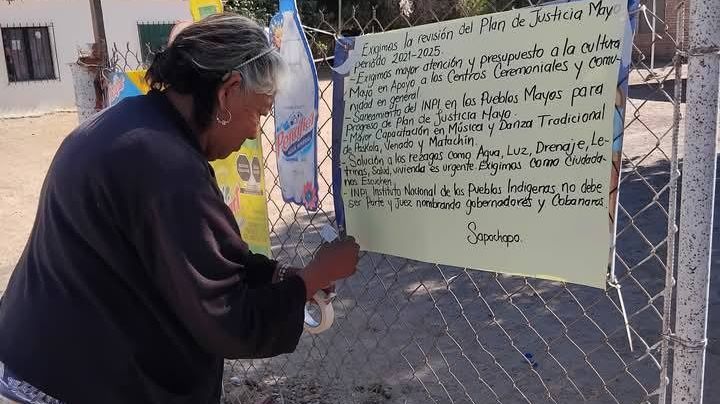 Exigimos la revisión del Plan de Justicia Mayo
periodo 2021-2025.
-Exigimos mayor atención y presupuesto a la cultura
Mayo en Apoyo a los Centros Ceremoniales y comu-
nidad en general.
-Saneamiento del INPI en los Pueblos Mayos para
progreso de Plan de Justicia Mayo.
-Mayor Capacitación en Música y Danza Tradicional
de Paskola, Venado y Matachin.
-Solución a los rezagos como Agua, Luz, Drenaje, Le-
trinas, Salud, vivienda es urgente. Exigimos como ciudada-
nos Escuchen.
-INPI Instituto Nacional de los Pueblos Indígenas no debe
ser Parte y Juez nombrando gobernadores y Cobanaros.
Sapochopo.